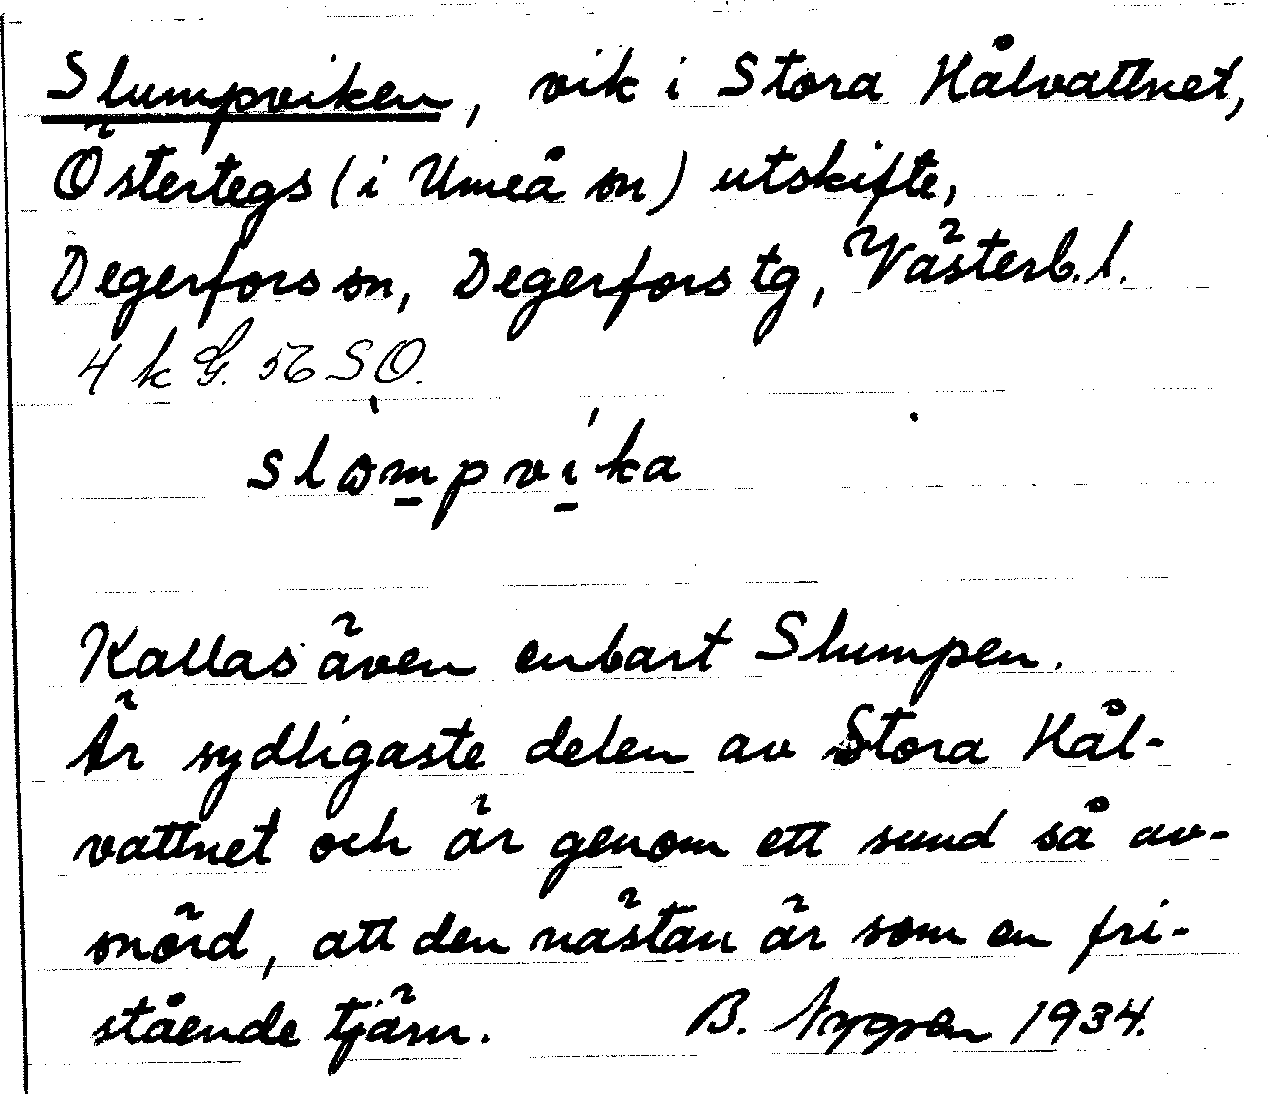 Slumpviken, vik i Stora Hålvattnet,
Östertegs (i Umeå sn) utskifte,
Degerfors sn, Degerfors tg, Västerb. l.
4 k G. 56 SO.
slòmpvíka
Kallas även enbart Slumpen.
Är sydligaste delen av Stora Hål-
vattnet och är genom ett sund så av-
snörd, att den nästan är som en fri-
stående tjärn. B. Nygren 1934.